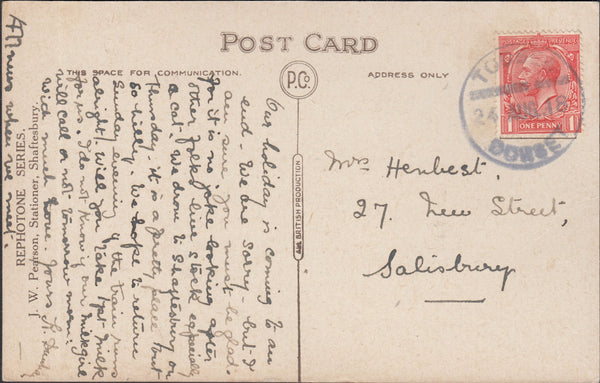 POST CARD
THIS SPACE FOR COMMUNICATION.
P.C.
ADDRESS ONLY
ALL BRITISH PRODUCTION
REPHOTONE SERIES.
J. W. Pearson, Stationer, Shaftesbury.
POSTAGE
ONE PENNY
1
1
24
18
DORSE
Mrs Henbest,
27. New Street,
Salisbury
Our holiday is coming to an
end. We are sorry - but I
am sure you must be glad.
for it is no joke looking after
other folks live stock especially
a cat. We drove to Shaftesbury on
Thursday. It is a pretty place but
so hilly. We hope to return
Sunday evening if the train runs
alright. Will you take 1pt milk
for us. I do not know if our milkgirl
will call or not tomorrow morn:
With much love. Yours
All
news when we meet.